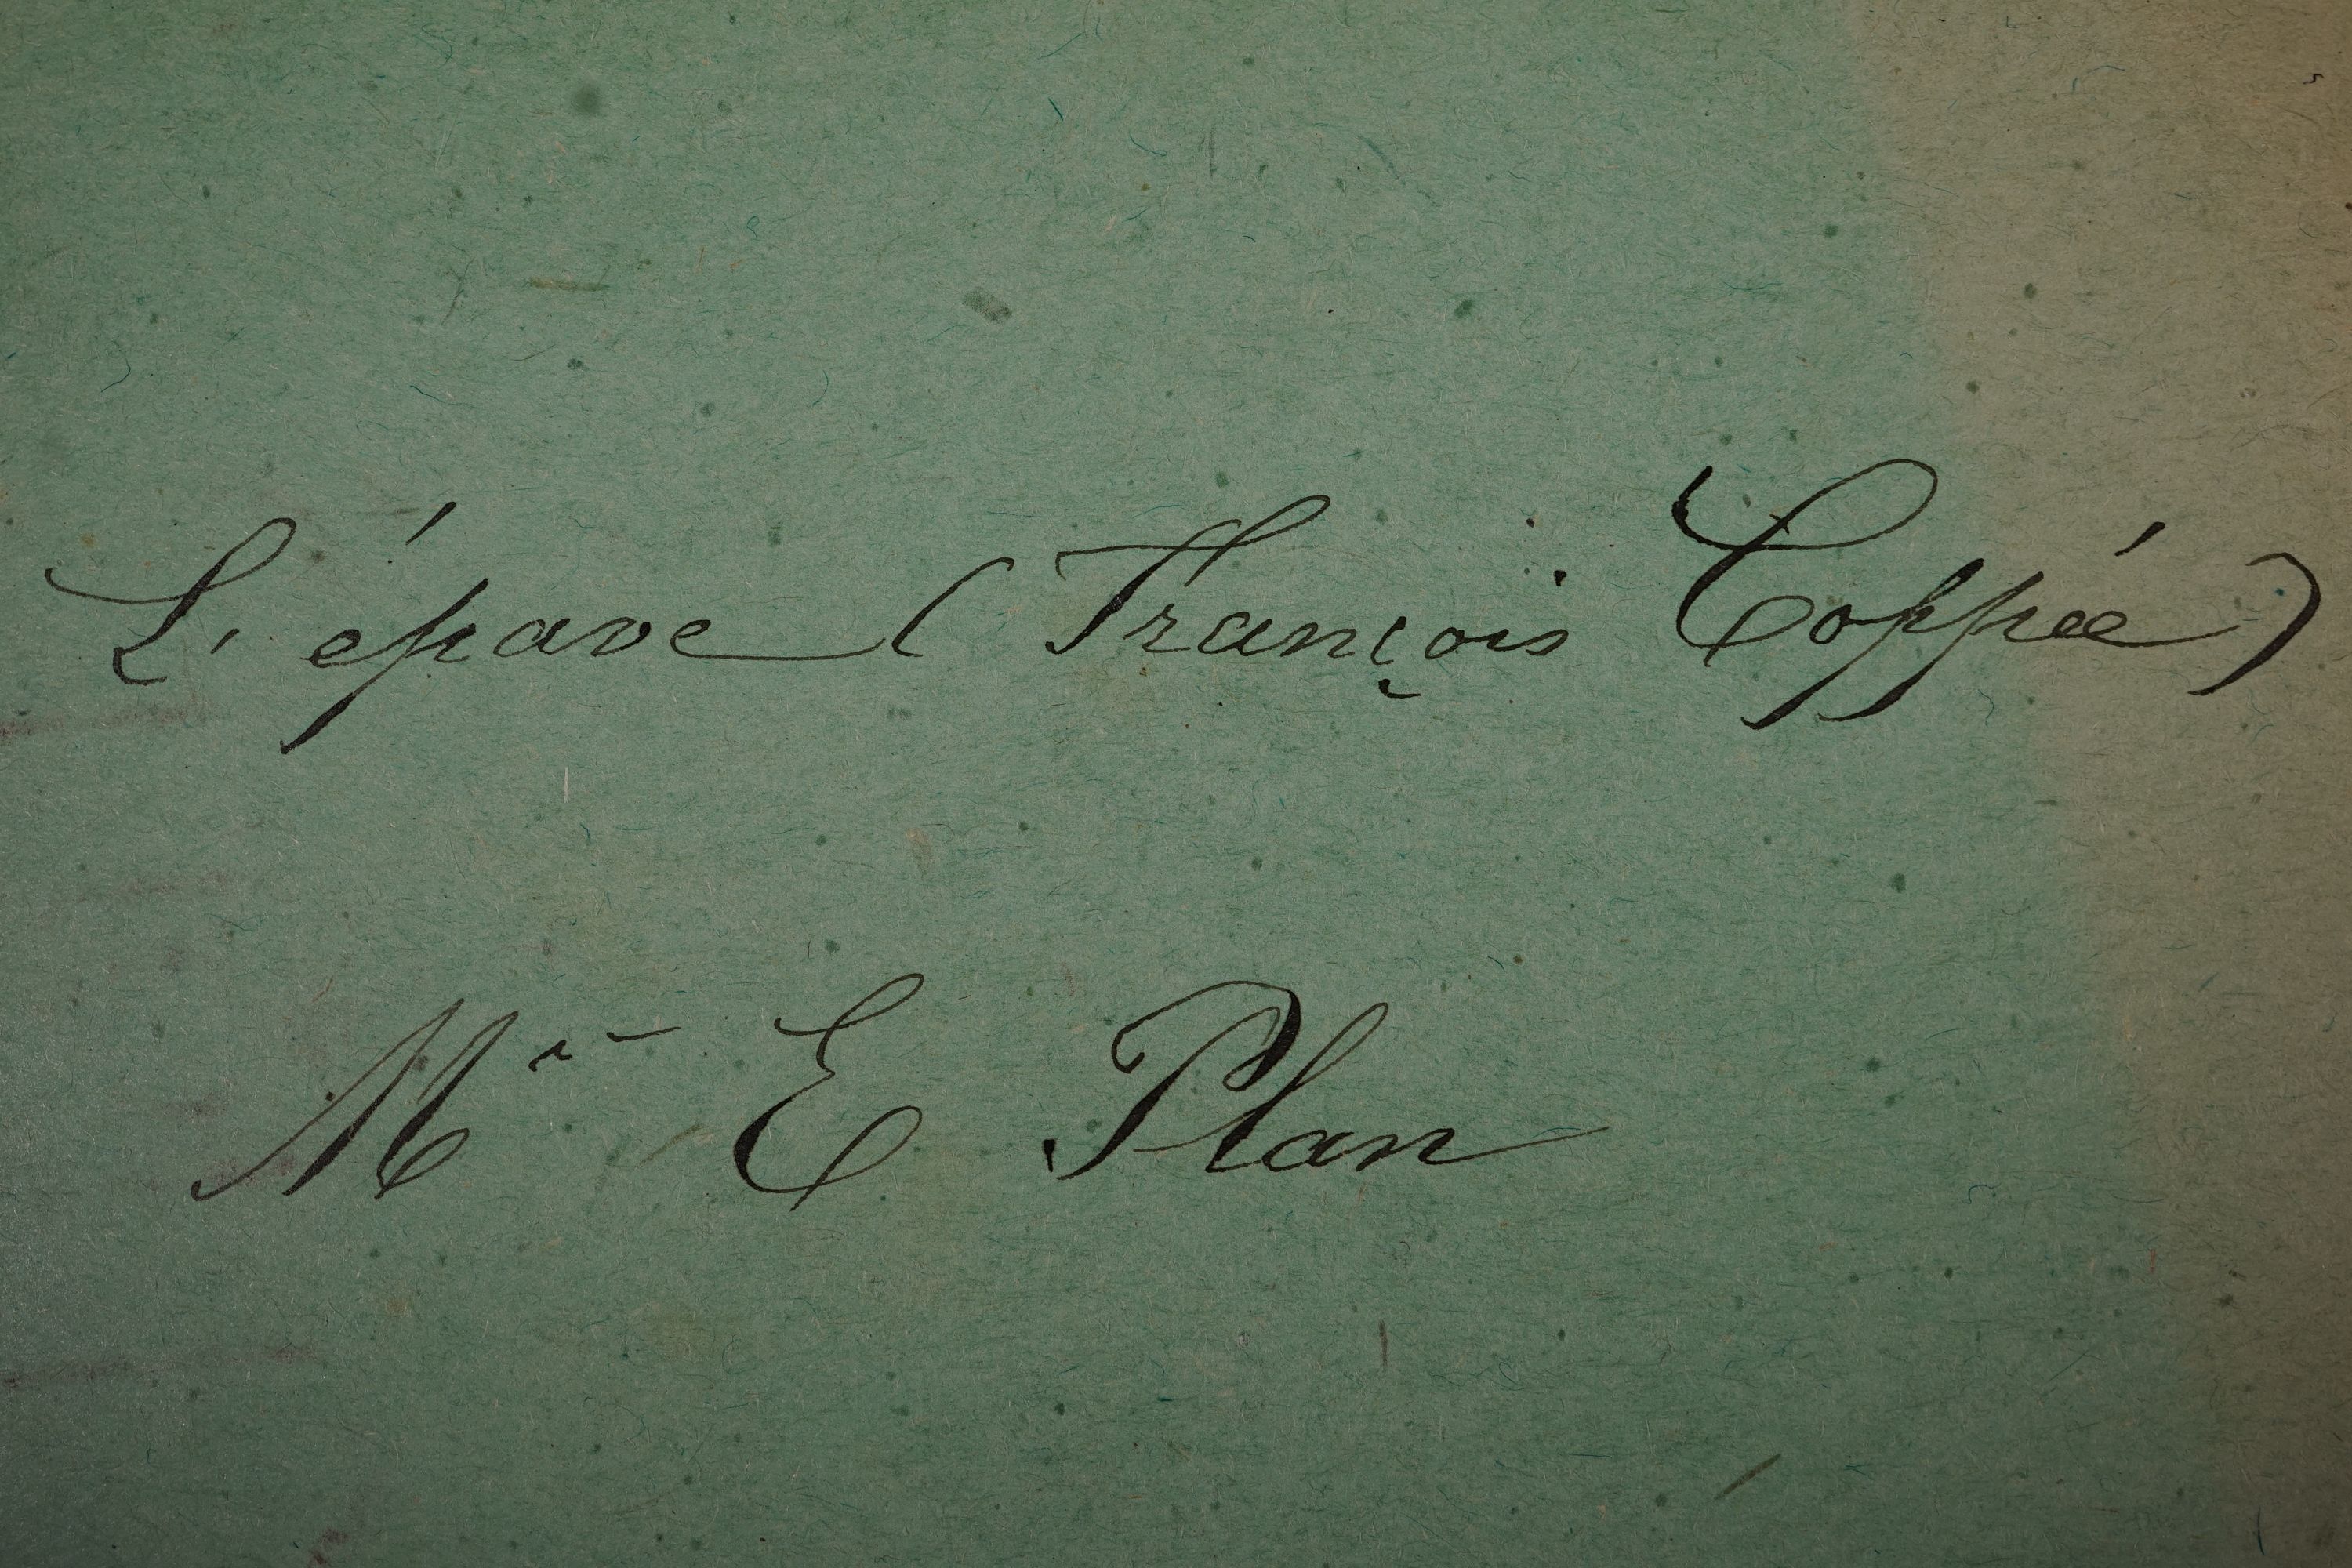 L'épave (François Coppée)
Mr E Plan